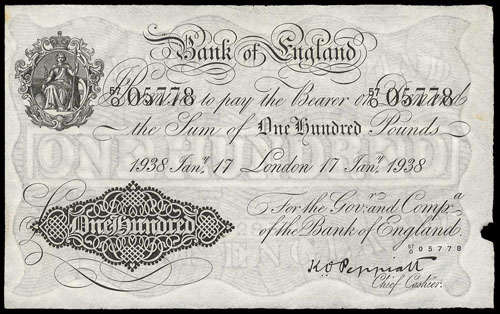 Bank of England
57/O 05778 57/O 05778
I Promise to pay the Bearer on Demand
the Sum of One Hundred Pounds
1938 Jany. 17 London 17 Jany. 1938
For the Govr. and Compa.
of the Bank of England.
57/O 05778
One Hundred
K O Peppiatt
Chief Cashier.